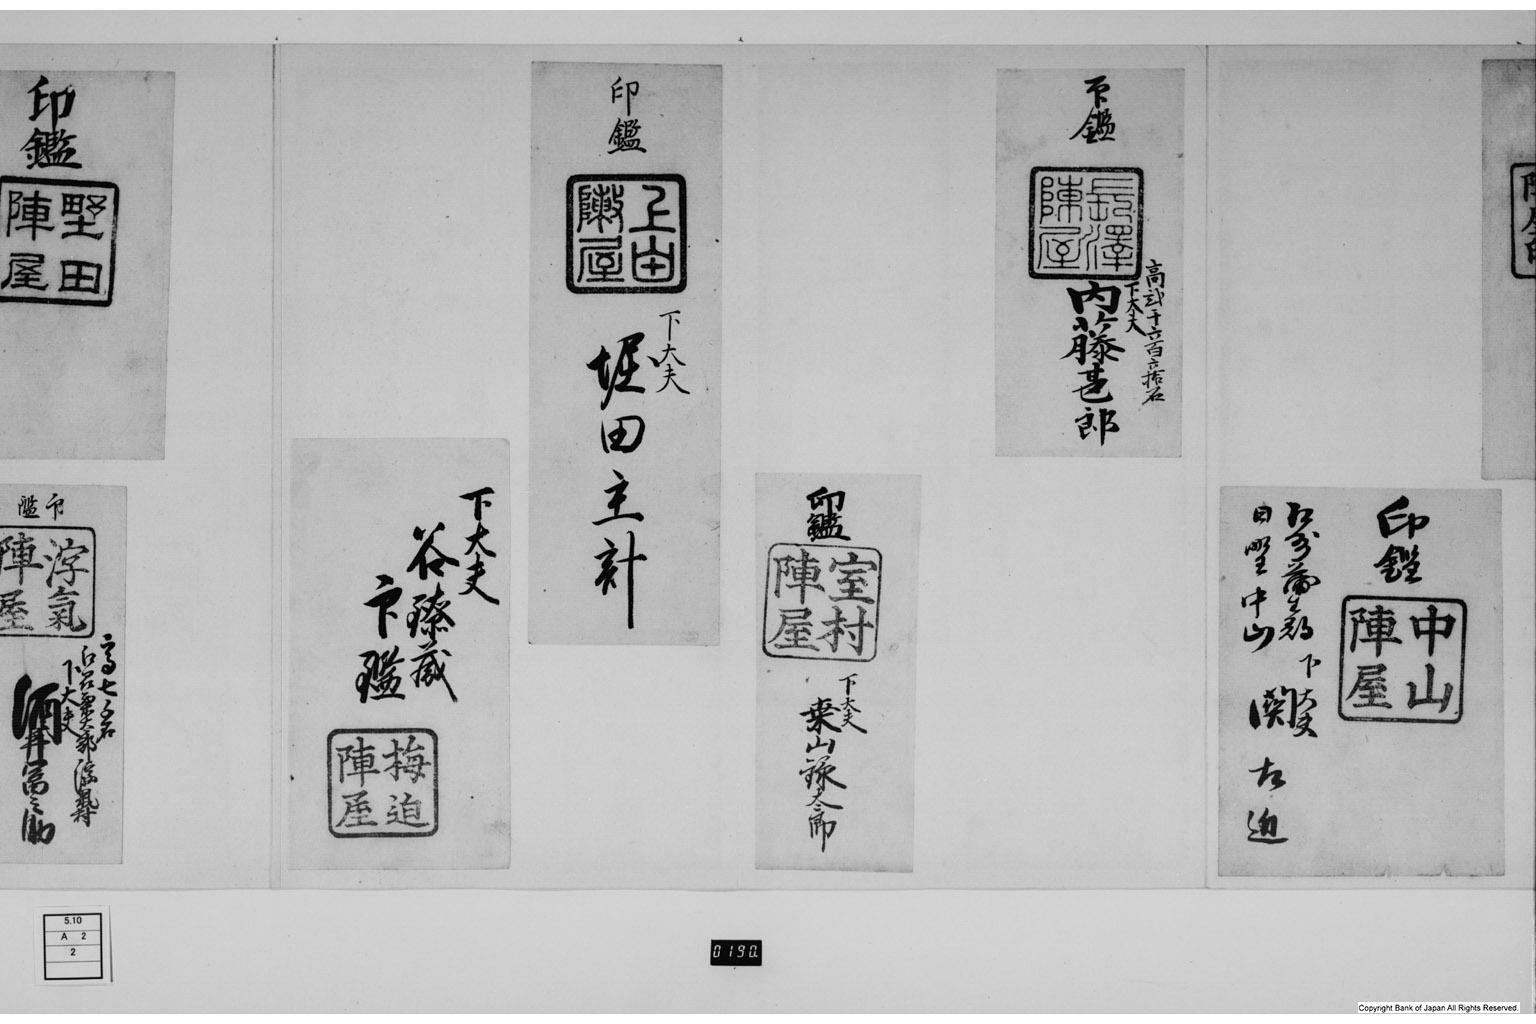 陣屋
印鑑
中山
陣屋
江州蒲生郡
日野中山
下大夫
関左近
印鑑
長澤
陳屋
高弐千六百六拾石
下大夫
内藤甚郎
印鑑
室村
陣屋
下大夫
葉山録太郎
印鑑
上田
陳屋
下大夫
堀田主計
下大夫
谷臻蔵
印鑑
梅迫
陣屋
印鑑
野田
陣屋
印鑑
浮氣
陣屋
高七千石
下大夫
酒井富之助
5.10
A 2
2
0190.
Copyright Bank of Japan All Rights Reserved.